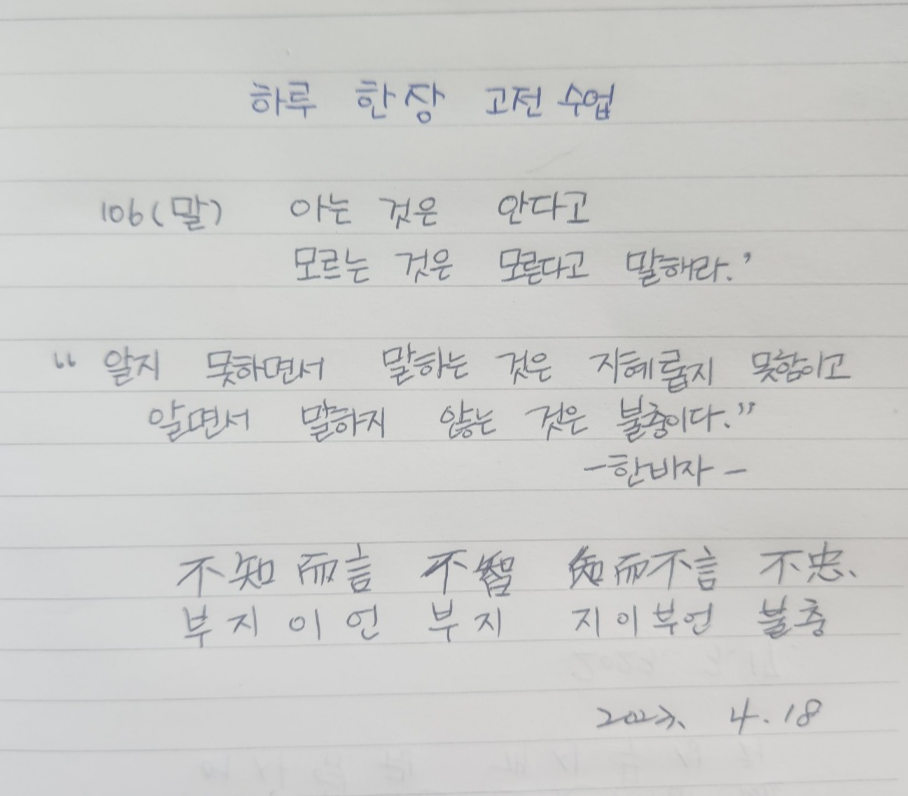 하루 한장 고전 수업
106(말) 아는 것은 안다고
모르는 것은 모른다고 말해라.’
“ 알지 못하면서 말하는 것은 지혜롭지 못함이고
알면서 말하지 않는 것은 불충이다.”
-한비자-
不知而言 不智 知而不言 不忠.
부지이언 부지 지이부언 불충
2023. 4.18